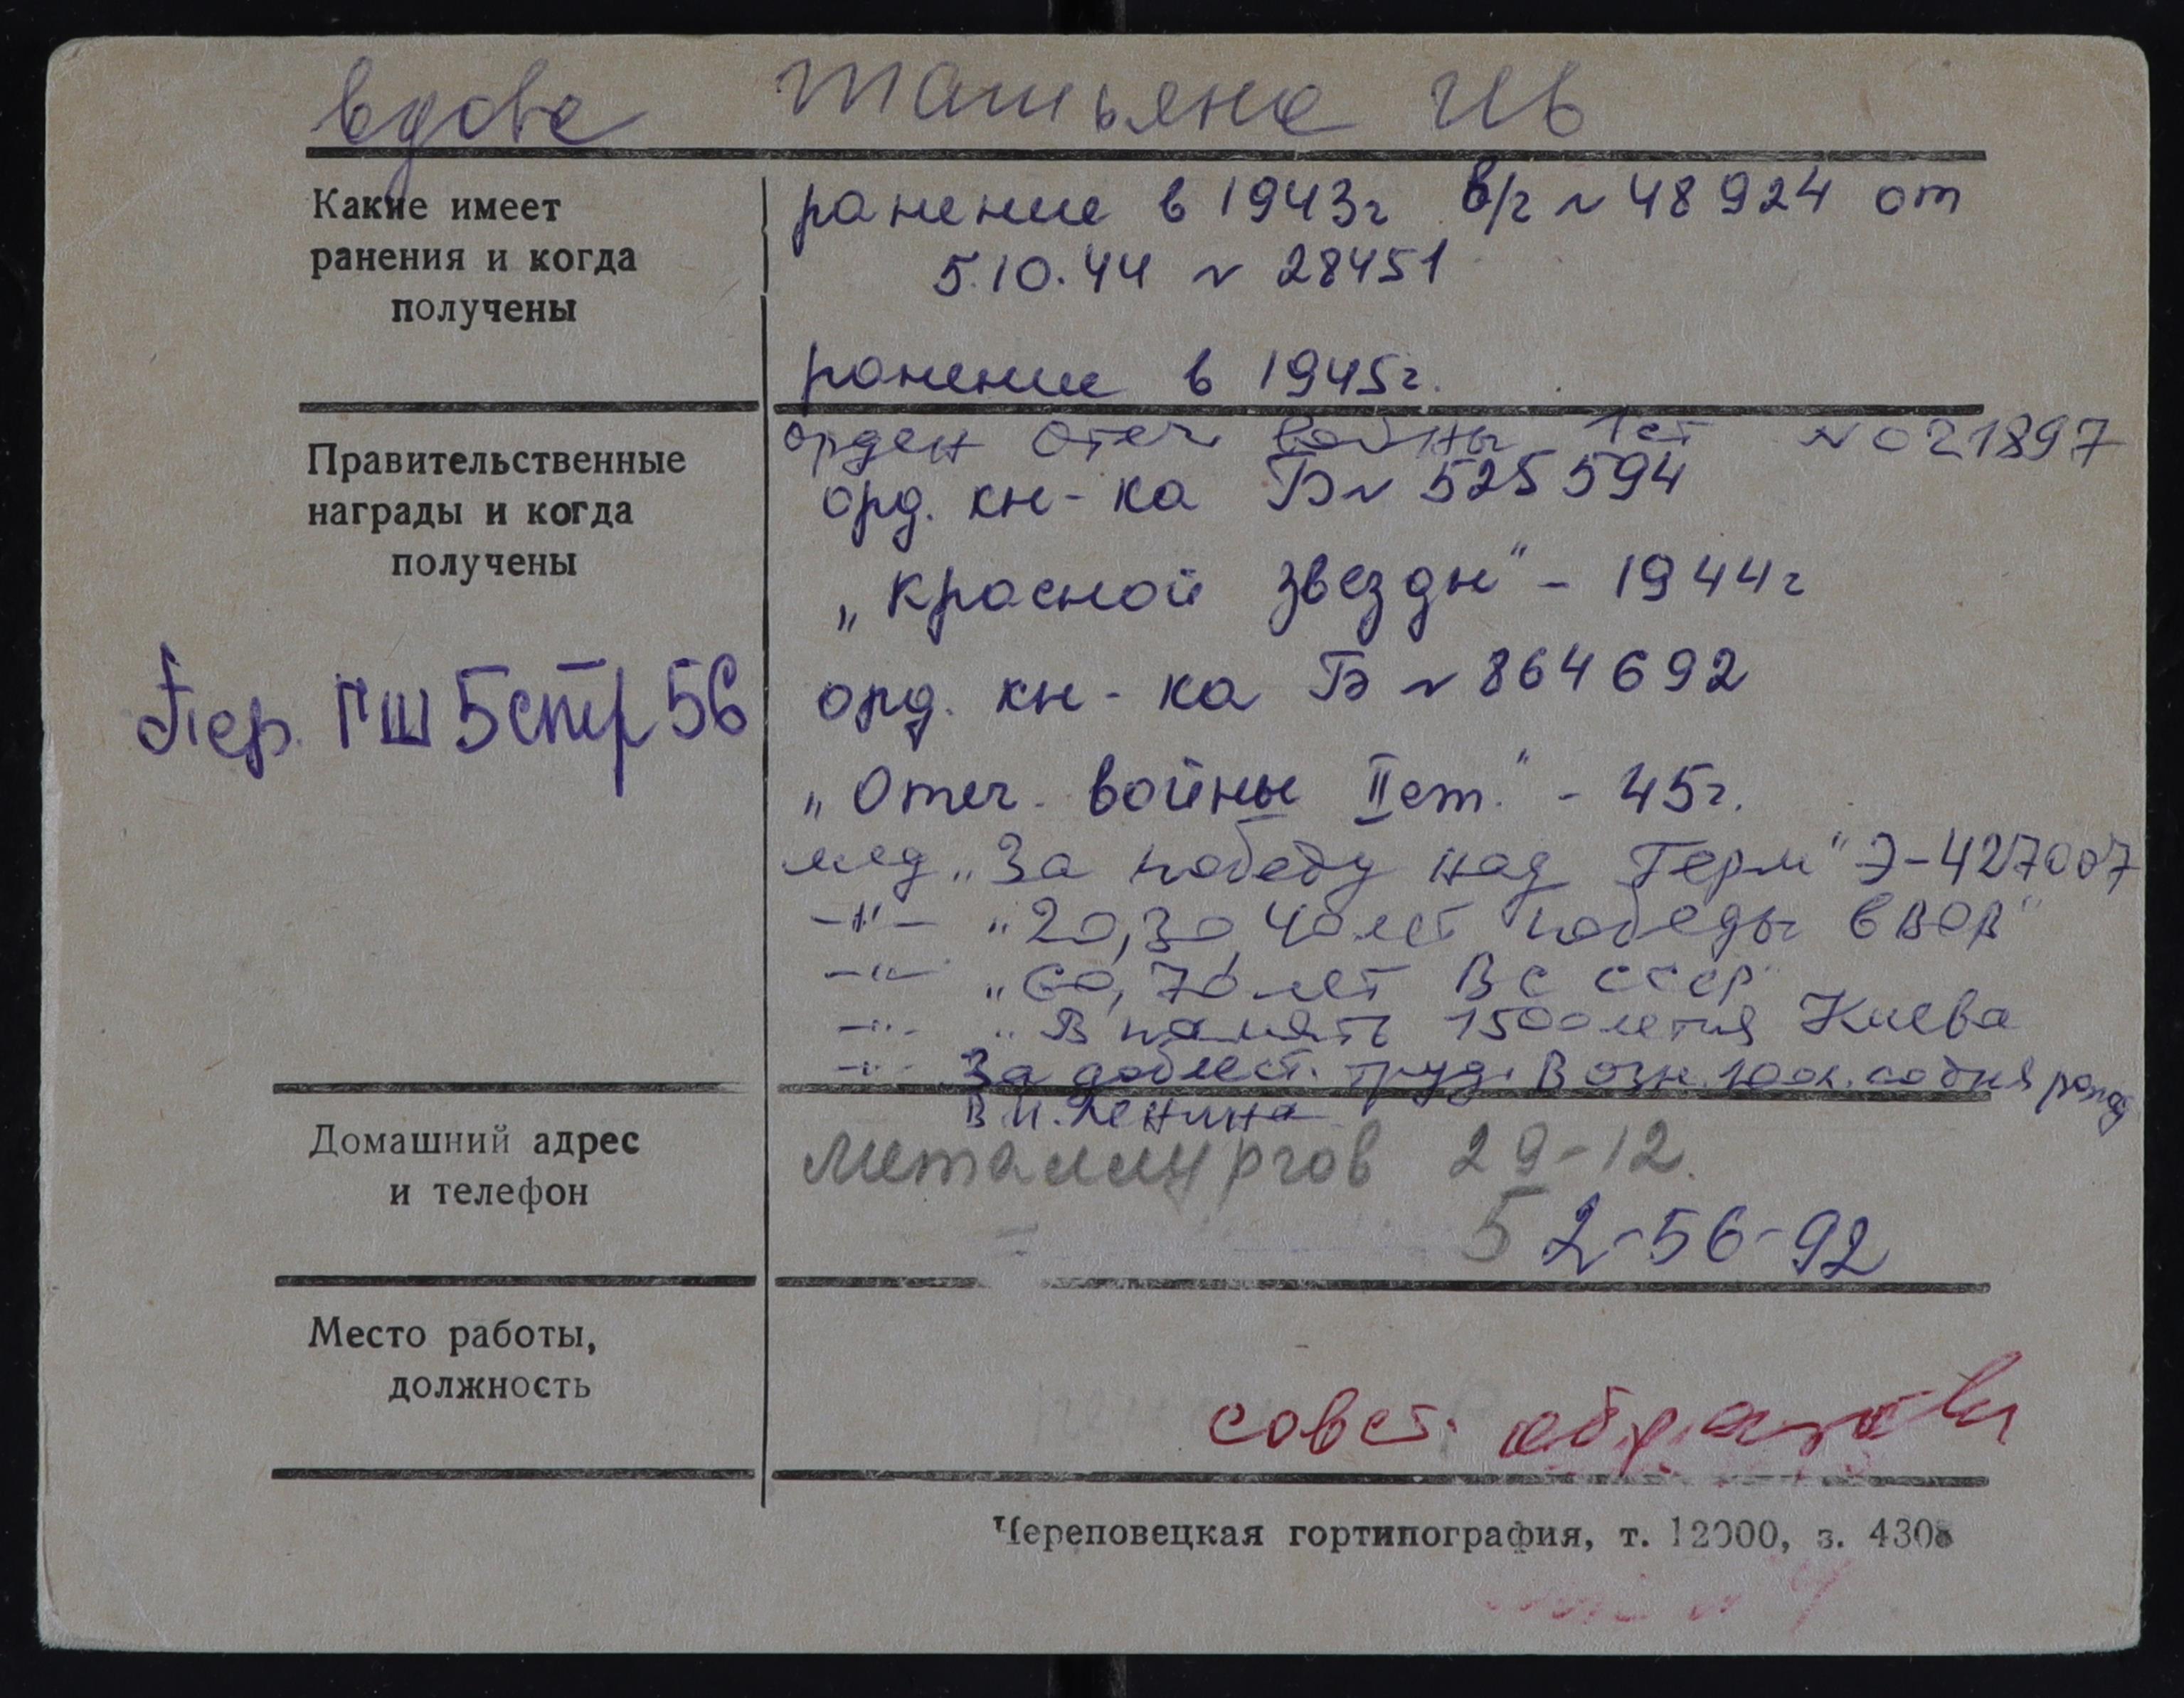 вдова Татьяна Ив
Какие имеет
ранения и когда
получены
ранение в 1943г в/г № 48924 от
5.10.44 № 28451
ранение в 1945г.
Правительственные
награды и когда
получены
орден Отеч войны 1 ст № 021897
орд. кн-ка Б№ 525594
„Красной звезды" - 1944г
орд. кн-ка Б № 864692
„Отеч. войны II ст." - 45г.
мед „За победу над Герм" Э-427007
-"- „20, 30, 40 лет победы в ВОВ"
-"- „60, 70 лет ВС СССР"
-"- „В память 1500летия Киева
-"- За доблест. труд. В озн. 100л. со дня рожд
В.И. Ленина
Пер. ПШ 5 стр 56
Домашний адрес
и телефон
Металлургов 29-12.
5 2-56-92
Место работы,
должность
совет.
Череповецкая гортипография, т. 12000, з. 4308